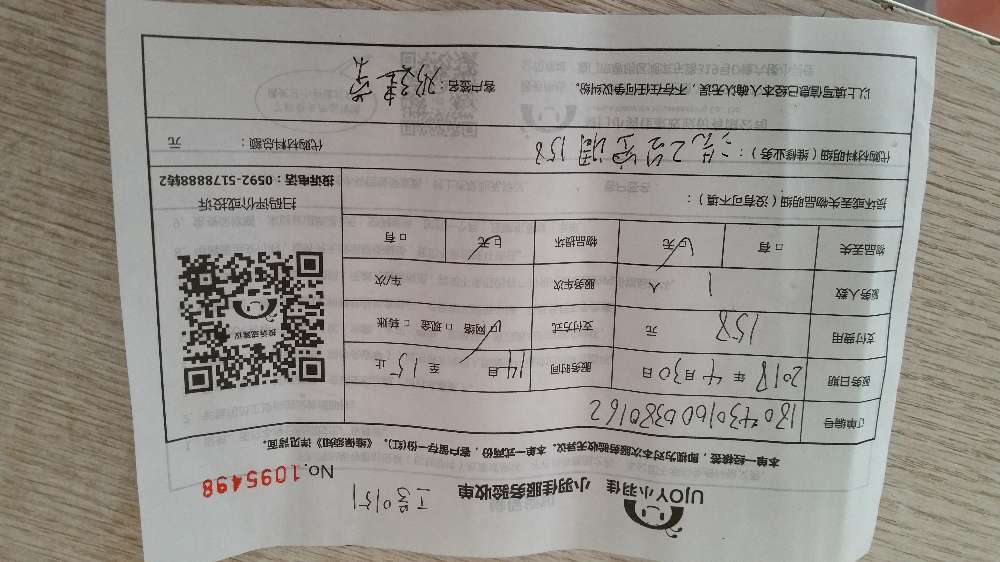 UJOY小羽佳 小羽佳服务验收单
No.1095498
本单一经核签，即视为对本次服务验收无异议。本单一式两份，客户留存一份(红)。《维保须知》详见背面。
订单编号 1804301600380162
服务日期 2018 年 4 月 30 日 服务时间 14 自 至 15 止
支付费用 158 元 支付方式 ☑网络 □现金 □转账
服务人数 1 人 服务车次 车/次
物品丢失 □有 ☑无 物品损坏 ☑无 □有
损坏或丢失物品明细（没有可不填）：
投诉或建议
扫码评价或投诉
投诉电话：0592-5178888转2
代购材料明细（维修业务）： 158
代购材料总额： 元
以上填写信息已经本人确认无误，不存在任何争议纠纷。
客户签名：